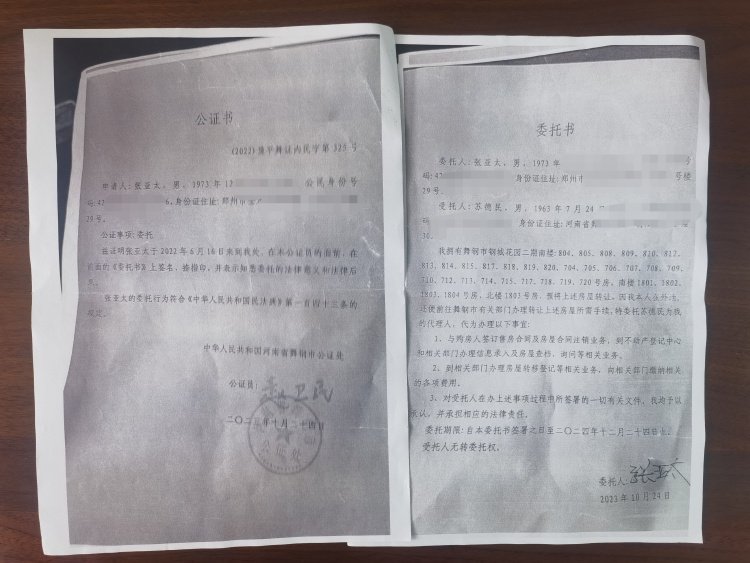 公证书
(2022) 豫平舞证内民字第 325 号
申请人: 张亚太, 男, 1973 年 12
公民身份号
码: 47
6, 身份证住址: 郑州市
29 号。
公证事项: 委托
兹证明张亚太于 2022 年 6 月 16 日来到我处, 在本公证员的面前, 在
前面的《委托书》上签名, 捺指印, 并表示知悉委托的法律意义和法律后
果。
张亚太的委托行为符合《中华人民共和国民法典》第一百四十三条的
规定。
中华人民共和国河南省舞钢市公证处
公证员:
卫民
二〇二三年十月二十四日
委托书
委托人: 张亚太, 男, 1973 年
号
码: 47
身份证住址: 郑州市
号楼
29 号。
受托人: 苏德民, 男, 1963 年 7 月 24
身份证住址: 河南省舞
30。
我拥有舞钢市钢城花园二期南楼: 804、805、808、809、810、812、
813、814、815、817、818、819、820、704、705、706、707、708、709、
710、712、713、714、715、717、718、719、720 号房, 南楼 1801、1802、
1803、1804 号房, 北楼 1803 号房, 预将上述房屋转让。因我本人在外地,
无法前往舞钢市有关部门办理转让上述房屋所需手续, 特委托苏德民为我
的代理人, 代为办理以下事宜:
1、与购房人签订售房合同及房屋合同注销业务, 到不动产登记中心
和相关部门办理信息录入及房屋查档, 询问等相关业务。
2、到相关部门办理房屋转移登记等相关业务, 向相关部门缴纳相关
的各项费用。
3、对受托人在办上述事项过程中所签署的一切有关文件, 我均予以
承认, 并承担相应的法律责任。
委托期限: 自本委托书签署之日至二〇二四年十二月二十四日止。
受托人无转委托权。
委托人: 张亚太
2023 年 10 月 24 日